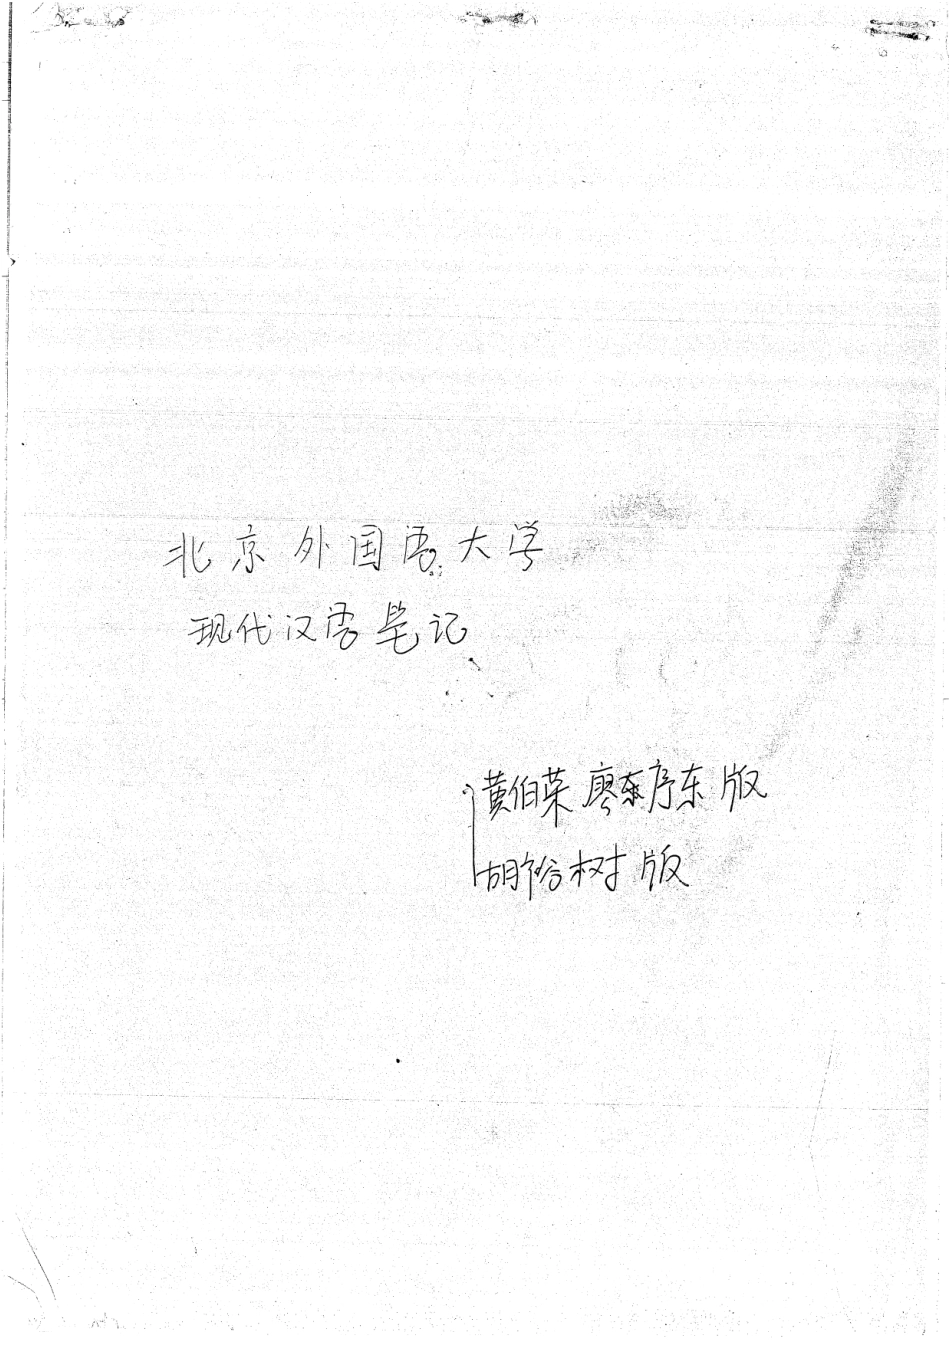 北京外国语大学
现代汉语笔记
黄伯荣 廖序东 版
胡裕树 版